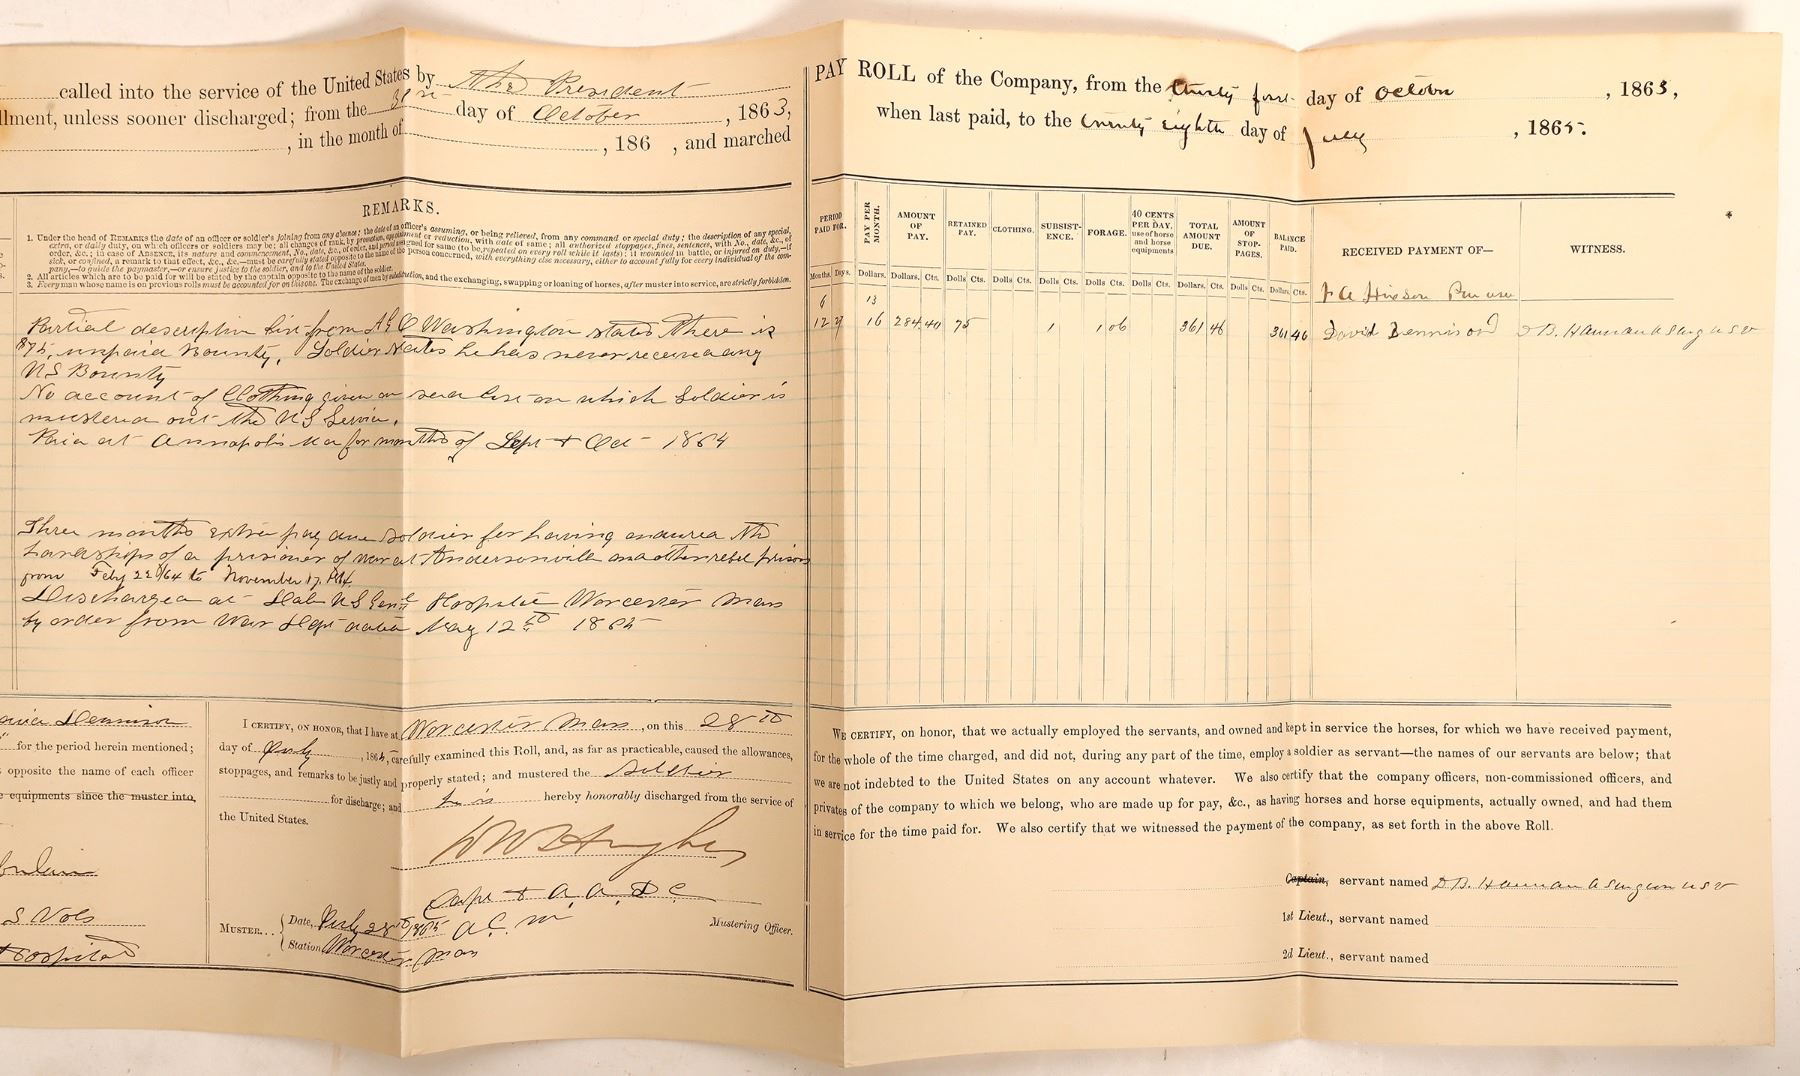 called into the service of the United States by The President
llment, unless sooner discharged; from the 31st day of October, 1863,
, in the month of , 186 , and marched
REMARKS.
1. Under the head of REMARKS the date of an officer or soldier's joining from any absence; the date of an officer's assuming, or being relieved, from any command or special duty; the description of any special,
extra, or daily duty, on which officers or soldiers may be; all changes of rank, by promotion, appointment or reduction, with date of same; all authorized stoppages, fines, sentences, with No., date, &c., of
order, &c.; in case of ABSENCE, its nature and commencement, No., date, &c., of order, and period assigned for same (to be repeated on every roll while it lasts); if wounded in battle, or injured on duty,—if
sick, or confined, a remark to that effect, &c., &c.—must be carefully stated opposite to the name of the person concerned, with everything else necessary, either to account fully for every individual of the com-
pany,—to guide the paymaster,—or ensure justice to the soldier, and to the United States.
2. All articles which are to be paid for will be stated by the captain opposite to the name of the soldier.
3. Every man whose name is on previous rolls must be accounted for on this one. The exchange of men by substitution, and the exchanging, swapping or loaning of horses, after muster into service, are strictly forbidden.
Partial descriptive list from A G O Washington states there is
$75, unpaid Bounty, Soldier states he has never received any
U S Bounty
No account of Clothing given on said list on which Soldier is
mustered out the U S Service.
Paid at Annapolis Md for months of Sept & Oct 1864
Three months extra pay due soldier for having endured the
hardships of a prisoner of war at Andersonville and other rebel prisons
from Feby 22d/64 to November 17, 1864
Discharged at Dale U S Genl Hospital Worcester Mass
by order from War Dept dated May 12th 1865
David Dennison
" for the period herein mentioned;
opposite the name of each officer
e equipments since the muster into,
S Vols
Hospital
I CERTIFY, ON HONOR, that I have at Worcester Mass, on this 28th
day of July, 1865, carefully examined this Roll, and, as far as practicable, caused the allowances,
stoppages, and remarks to be justly and properly stated; and mustered the soldier
for discharge; and he is hereby honorably discharged from the service of
the United States.
Capt & A. A. D. C.
A. C. M
Mustering Officer.
MUSTER... Date, July 28th 1865
Station Worcester Mass
PAY ROLL of the Company, from the thirty first day of October, 1863,
when last paid, to the twenty eighth day of July, 1865.
PERIOD PAID FOR. PAY PER MONTH. AMOUNT OF PAY. RETAINED PAY. CLOTHING. SUBSISTENCE. FORAGE. 40 CENTS PER DAY, use of horse and horse equipments TOTAL AMOUNT DUE. AMOUNT OF STOPPAGES. BALANCE PAID. RECEIVED PAYMENT OF— WITNESS.
Months. Days. Dollars. Dollars. Cts. Dolls Cts. Dolls Cts. Dolls Cts. Dolls Cts. Dolls Cts. Dollars Cts. Dolls Cts. Dollars Cts.
6 13
12 27 16 284.40 75 1 1 06 361 46 361 46 David Dennison D B. Hannan A Surg U S V
WE CERTIFY, on honor, that we actually employed the servants, and owned and kept in service the horses, for which we have received payment,
for the whole of the time charged, and did not, during any part of the time, employ a soldier as servant—the names of our servants are below; that
we are not indebted to the United States on any account whatever. We also certify that the company officers, non-commissioned officers, and
privates of the company to which we belong, who are made up for pay, &c., as having horses and horse equipments, actually owned, and had them
in service for the time paid for. We also certify that we witnessed the payment of the company, as set forth in the above Roll.
Captain, servant named D B. Hannan A Surgeon U S V
1st Lieut., servant named
2d Lieut., servant named